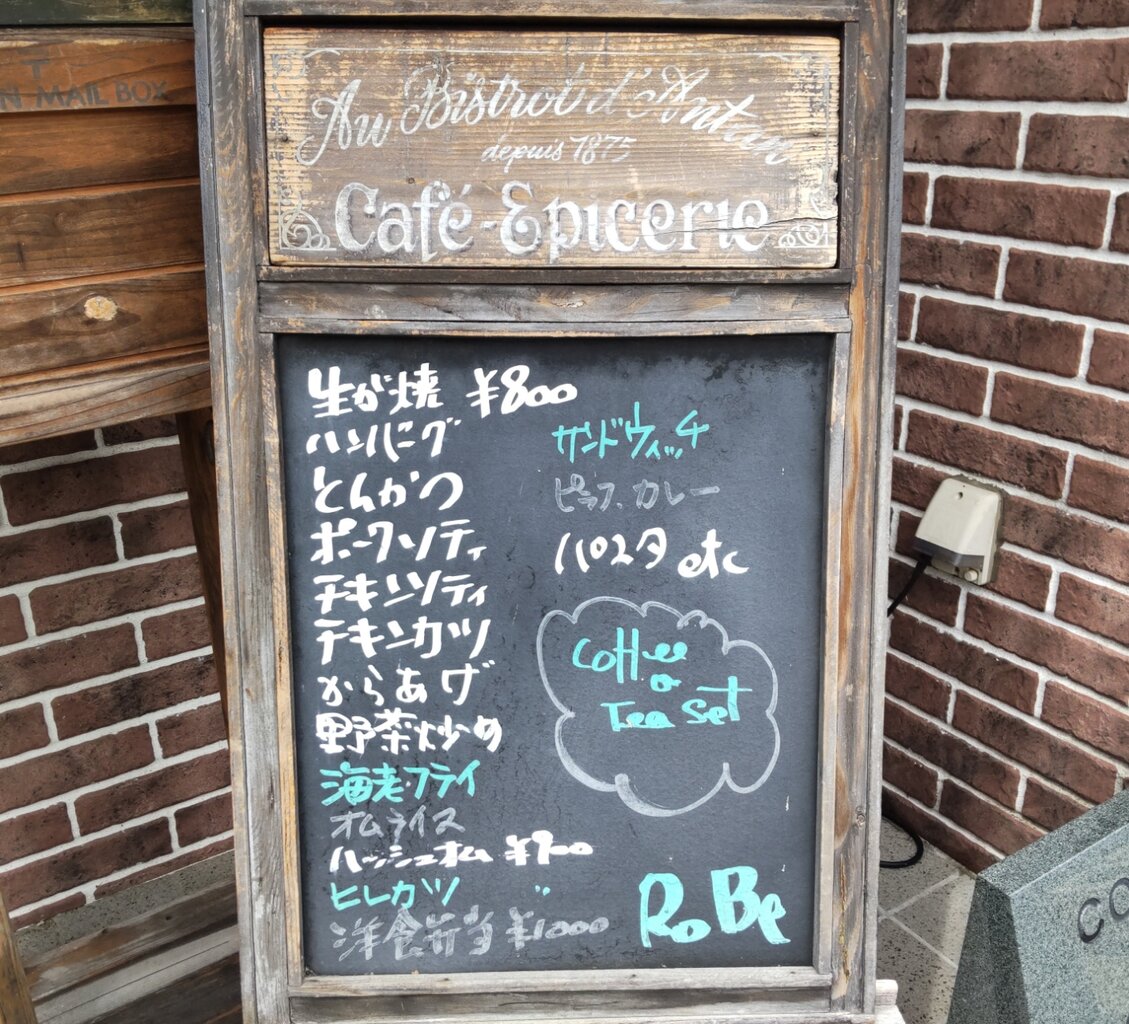 T
N MAIL BOX
Au Bistrot d'Antan
depuis 1875
Café-Epicerie
生が焼 ¥800
ハンバーグ
とんかつ
ポークソティ
チキンソティ
チキンカツ
からあげ
野菜炒め
海老フライ
オムライス
ハッシュオム ¥900
ヒレカツ 〃
洋食弁当 ¥1000
サンドウィッチ
ピラフ、カレー
パスタ etc
Coffee
or
Tea Set
RoBe
CO